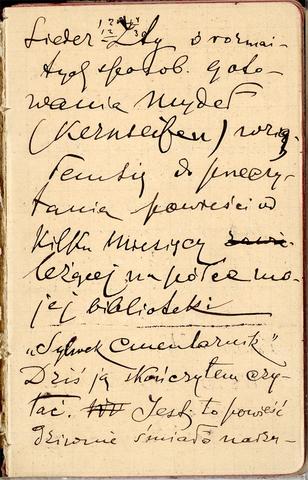 o rozmai-
tych sposob. goto-
wania mydeł
(Kernseifen) wzią
łem się do przeczy-
tania powieści od
kilku miesięcy
leżącej na półce mo-
jej biblioteki
"Sylwek Cmentarnik"
Dziś ją skończyłem czy-
tać. Jest to powieść
dziwnie śmiało